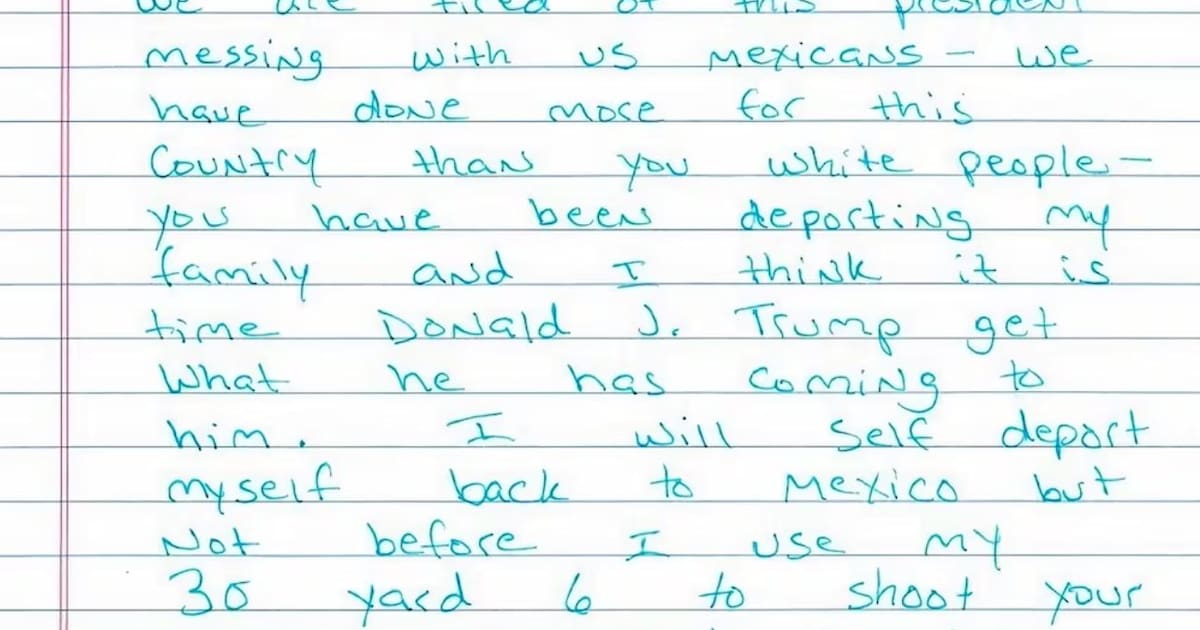 We are tired of this president
messing with us Mexicans - we
have done more for this
Country than you white people -
you have been deporting my
family and I think it is
time Donald J. Trump get
What he has coming to
him. I will self deport
myself back to Mexico but
Not before I use my
30 yard 6 to shoot your